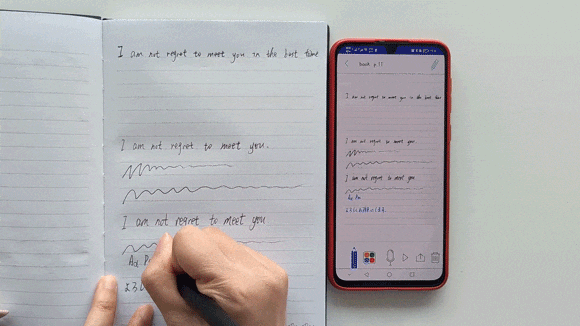 I am not regret to meet you in the best time
I am not regret to meet you.
I am not regret to meet you
よろし
I am not regret to meet you in the best time
I am not regret to meet you.
I am not regret to meet you
よろしくお願いします